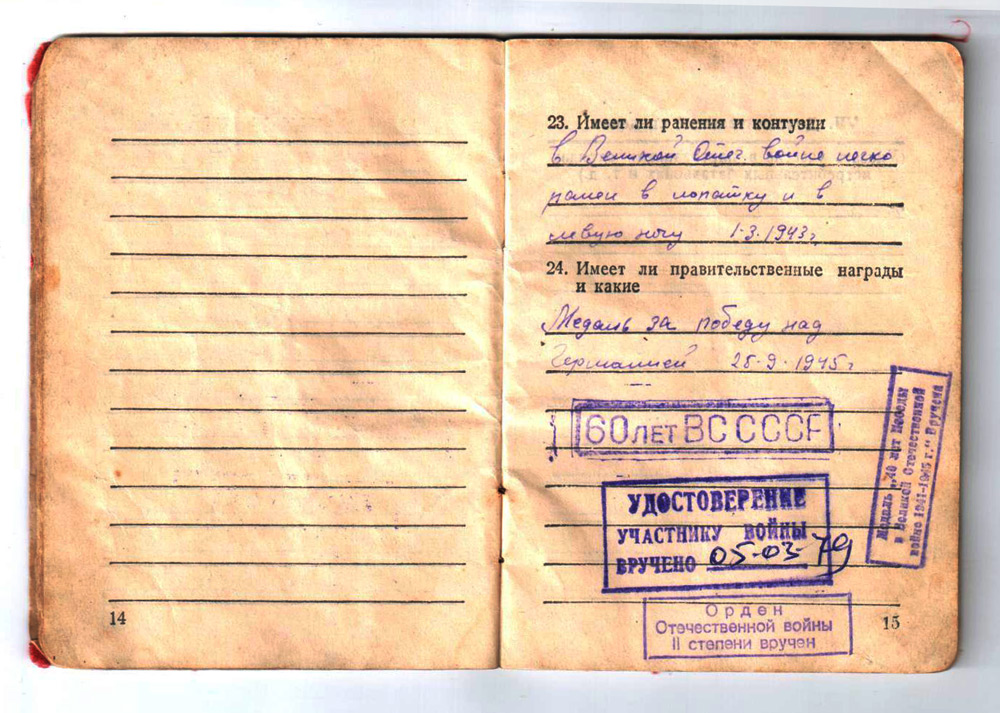 23. Имеет ли ранения и контузии
в Великой Отеч. войне легко
ранен в лопатку и в
левую ногу 1.3.1943 г.
24. Имеет ли правительственные награды
и какие
Медаль за победу над
Германией 25.9.1945 г.
60 ЛЕТ ВС СССР
УДОСТОВЕРЕНИЕ
УЧАСТНИКУ ВОЙНЫ
ВРУЧЕНО 05-03-79
Медаль „40 лет Победы
в Великой Отечественной
войне 1941-1945 г." Вручена
Орден
Отечественной войны
II степени вручен
14
15